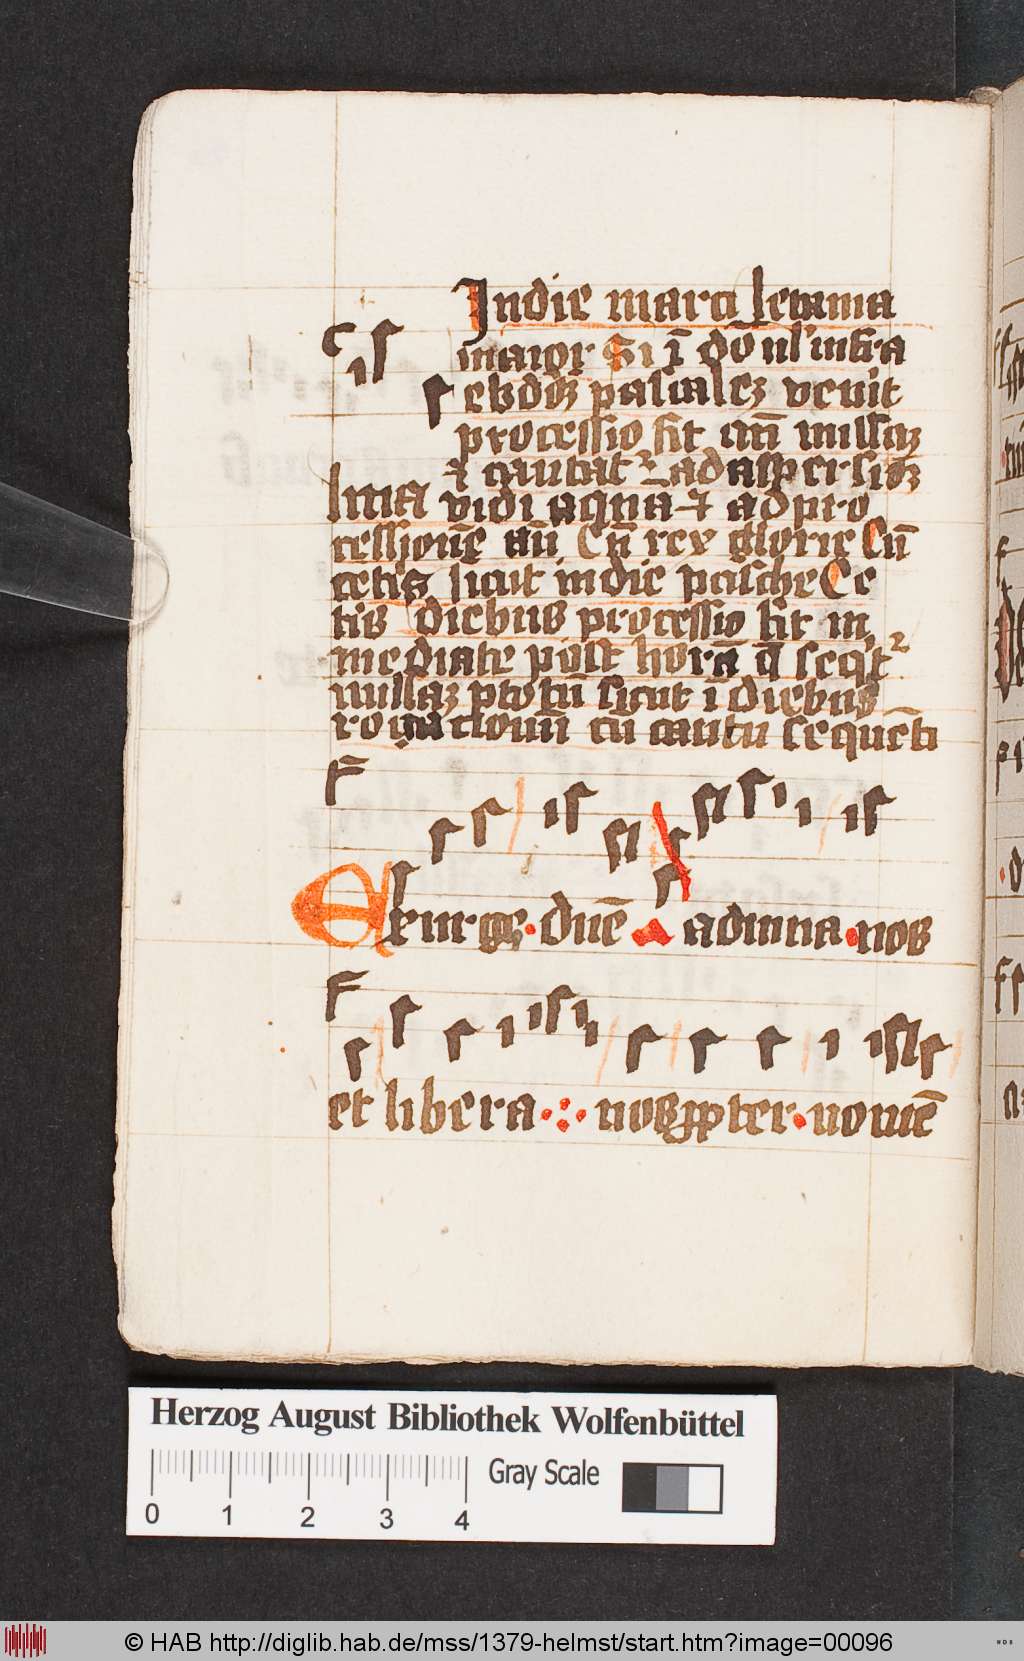 In die marci letania
maior Si ī dō ul' infra
ebdo͞z pascalez venit
processio fit an̄ missaz
⁊ cantat᷑ ad aspersioz
ima vidi aqua ⁊ ad pro
cessionē an̄ Cū rex glorie Cū
cetis sicut in die pasche Ce
tis diebus processio fit in
mediate post horā q̄ seqit᷑
missaz ptotū sicut ī diebus
rogacionū cū cantu sequēti
F
Exurge dn̄e adiuua nos
F
et libera nos ꝓpter nomē
Herzog August Bibliothek Wolfenbüttel
Gray Scale
0 1 2 3 4
© HAB http://diglib.hab.de/mss/1379-helmst/start.htm?image=00096